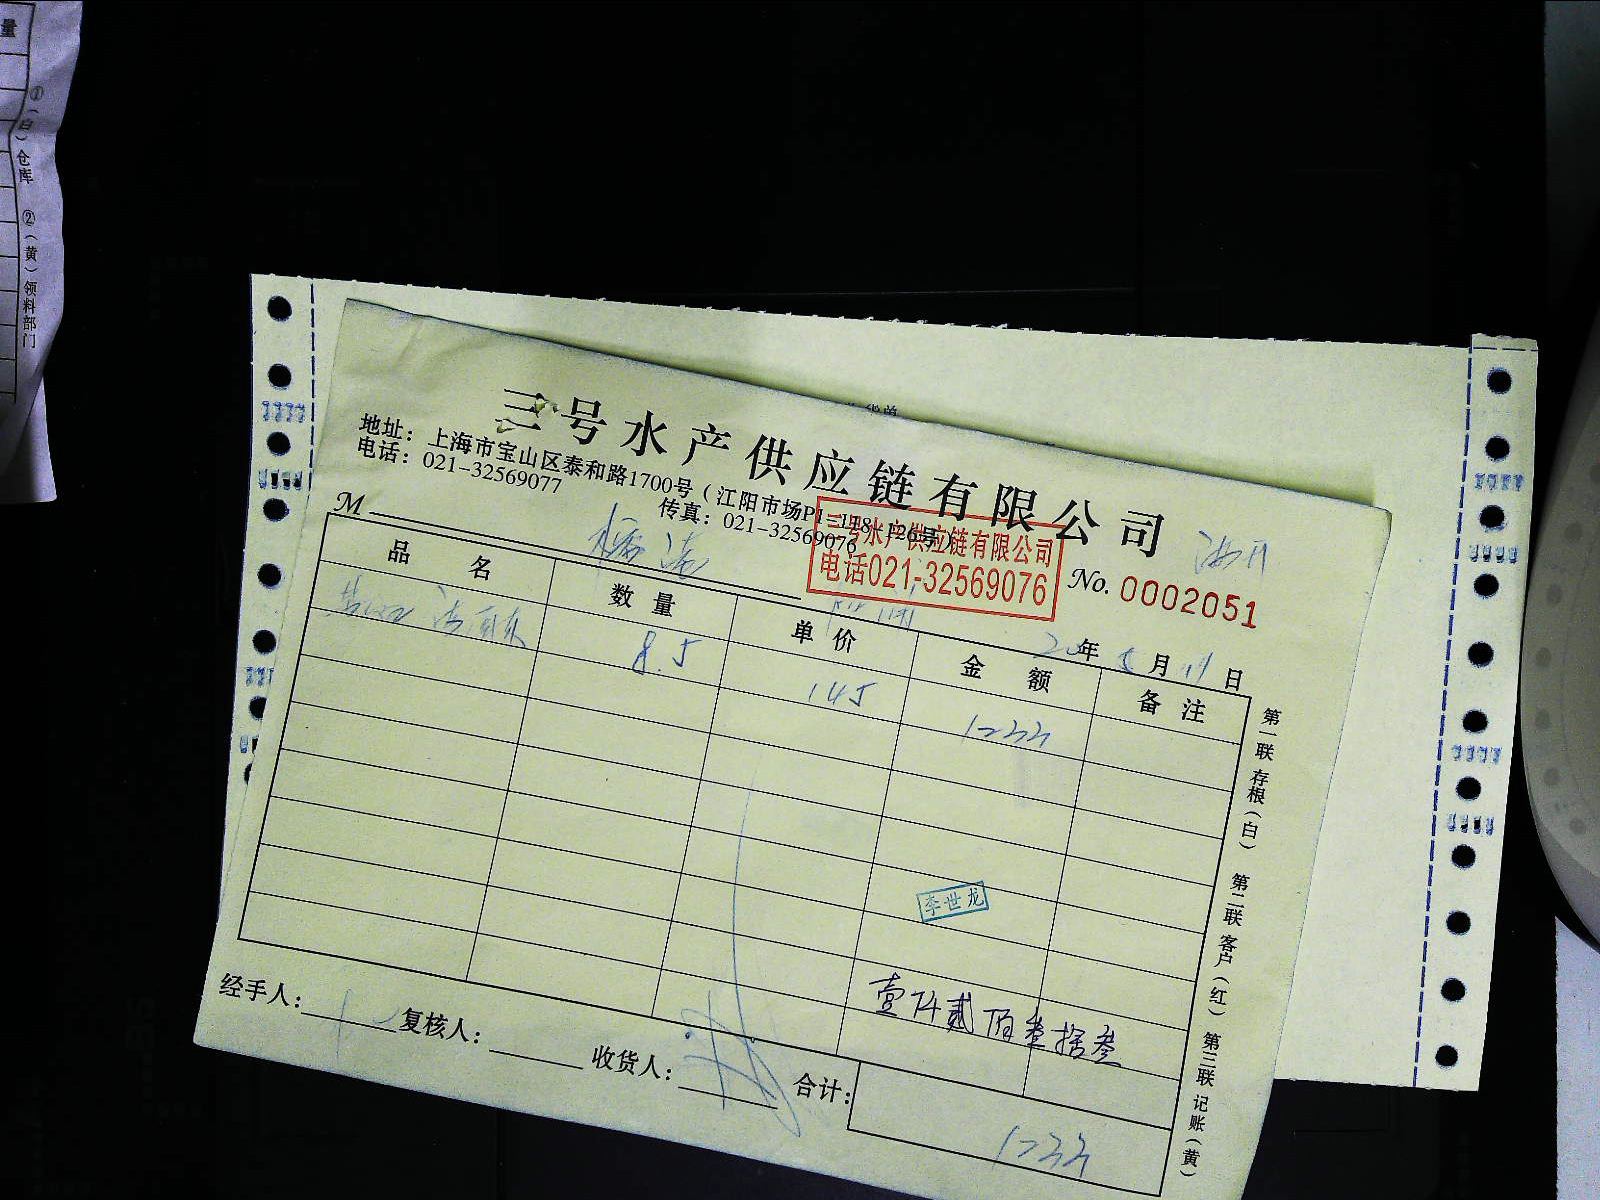 三号水产供应链有限公司
地址：上海市宝山区泰和路1700号（江阳市场P1-118-126号）
电话：021-32569077
传真：021-32569076
三号水产供应链有限公司
电话021-32569076
M
No. 0002051
20年 月 日
品名 数量 单价 金额 备注
8.5 145 1233
李世龙
壹仟贰佰叁拾叁
经手人： 复核人： 收货人： 合计：1233
第一联 存根（白） 第二联 客户（红） 第三联 记账（黄）
量
①（白）仓库 ②（黄）领料部门